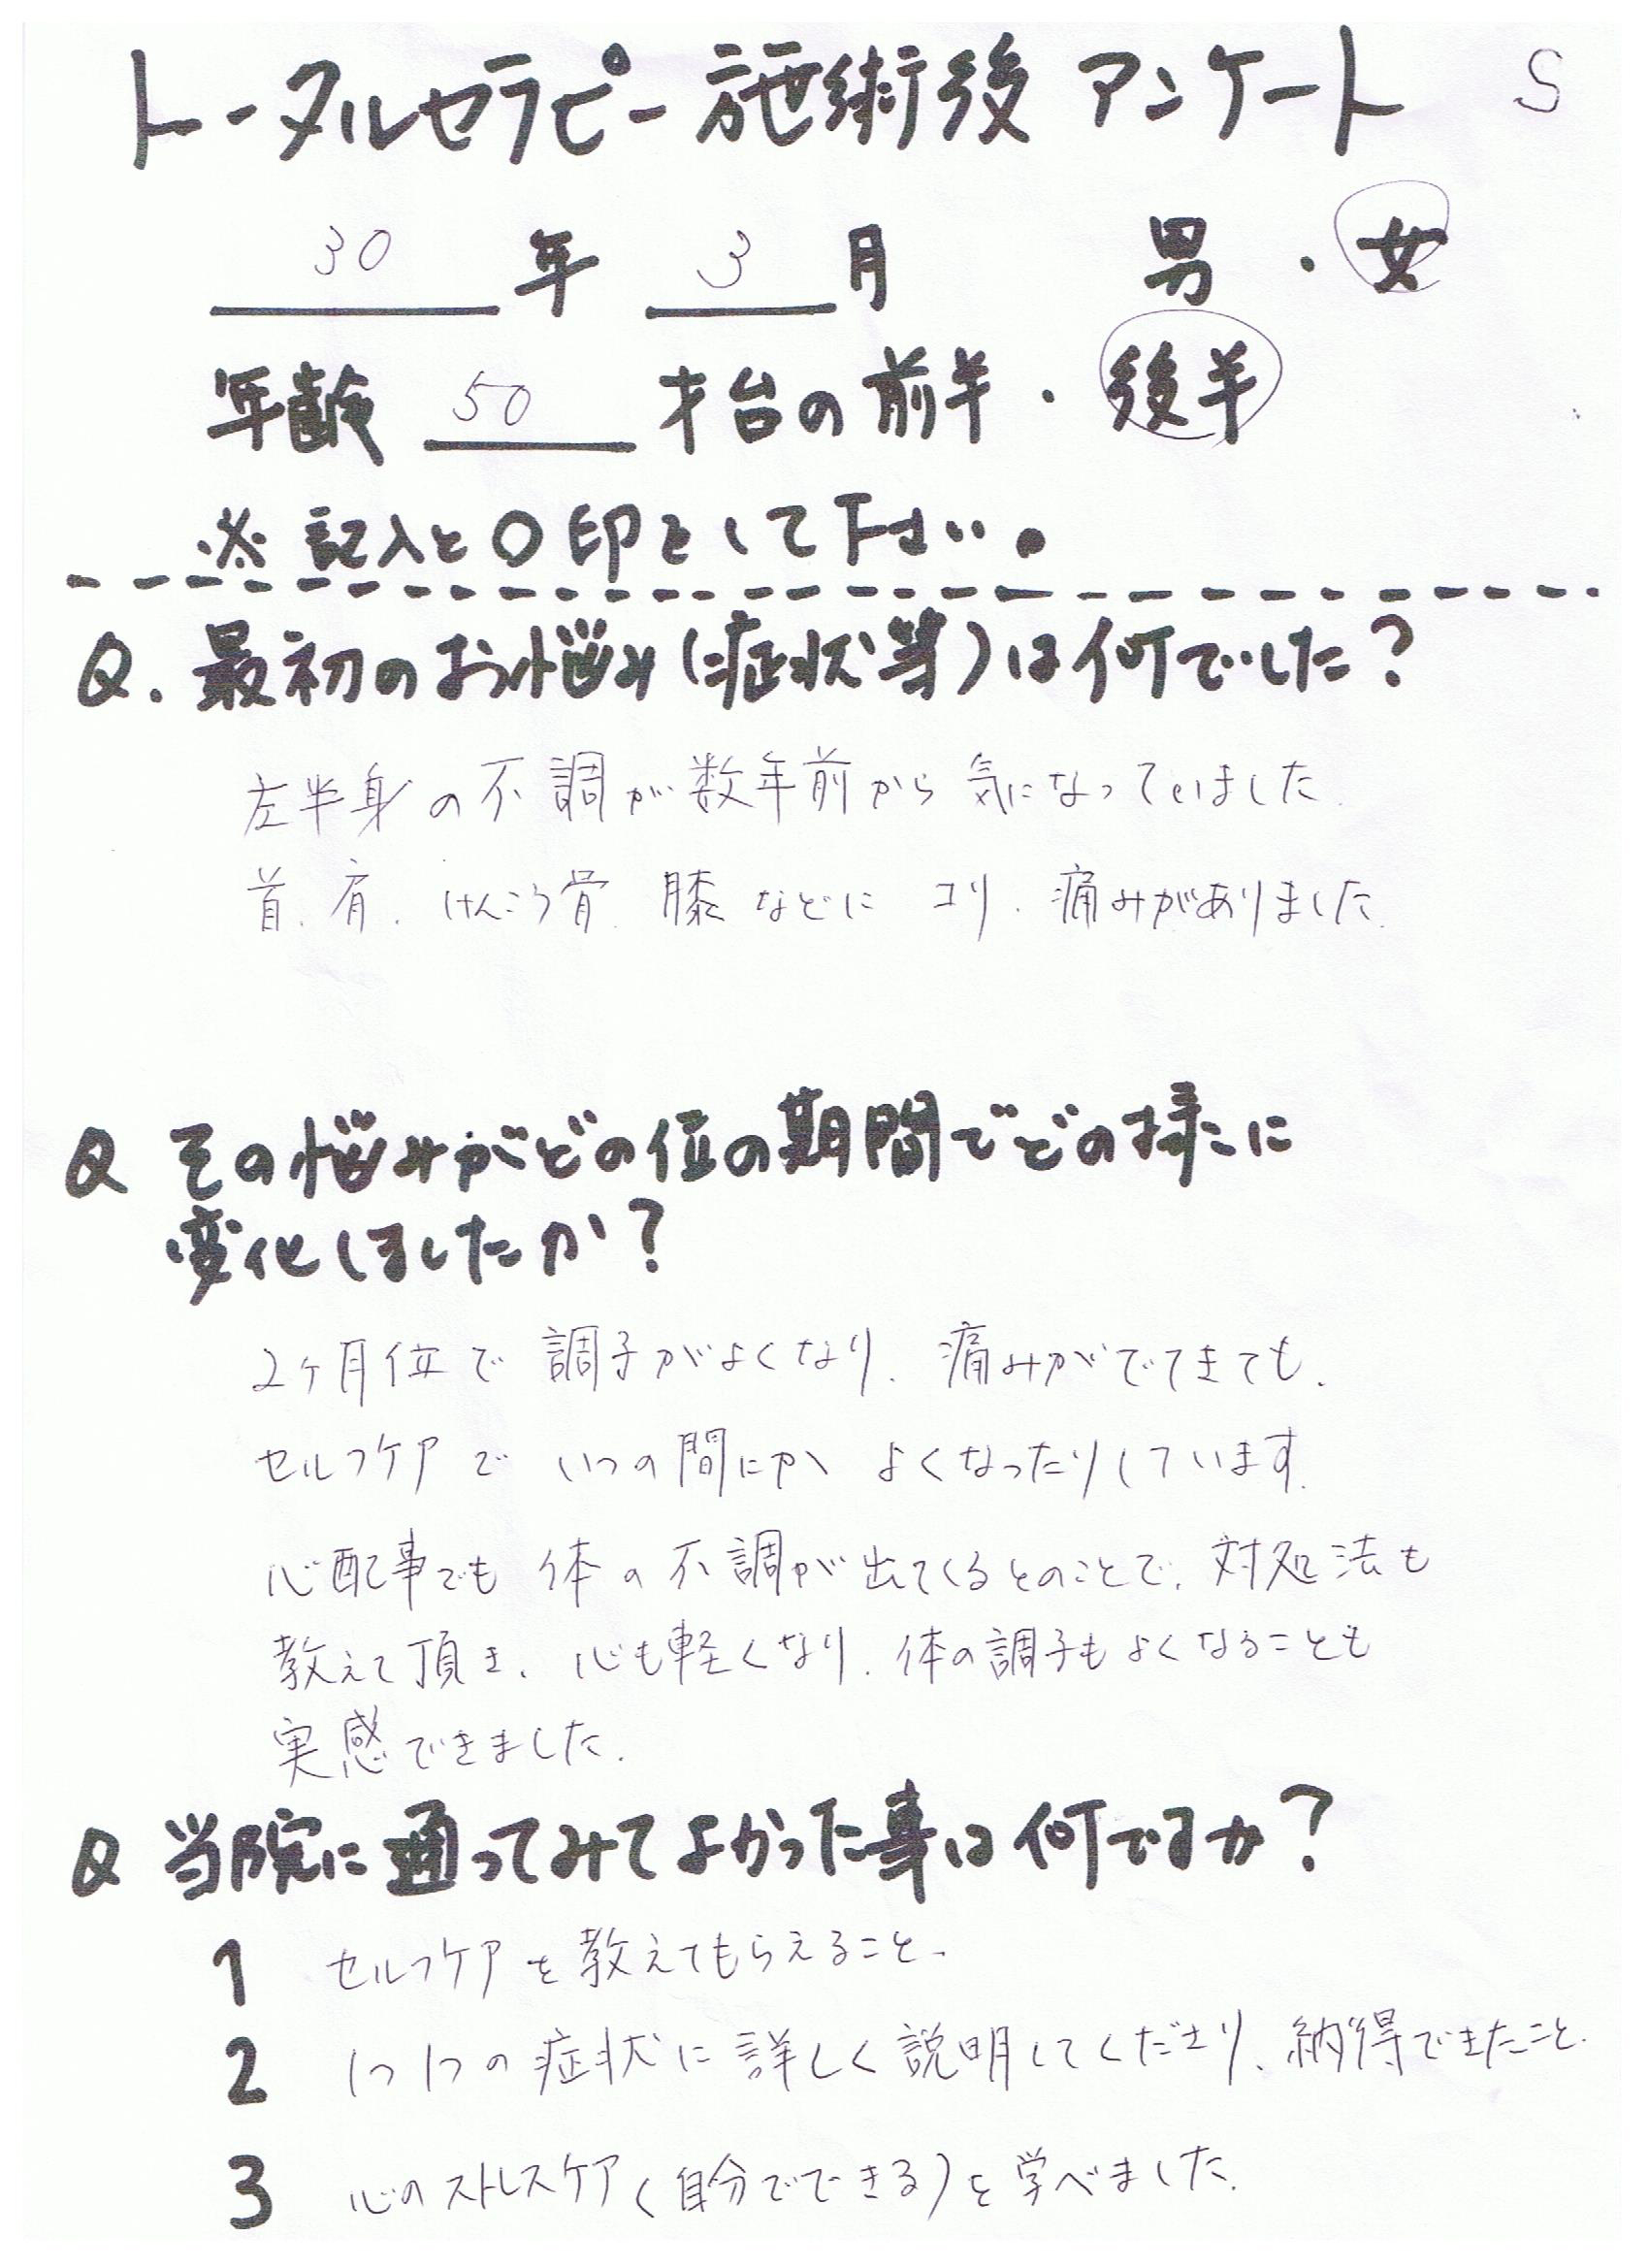 トータルセラピー施術後 アンケート S
30 年 3 月 男 ・ 女
年齢 50 才台の前半 ・ 後半
※ 記入と〇印をして下さい。
Q. 最初のお悩み(症状等)は何でした?
左半身の不調が数年前から気になっていました.
首. 肩. けんこう骨. 膝 などに コリ. 痛みがありました.
Q その悩みがどの位の期間でどの様に
変化しましたか?
2ヶ月位で 調子がよくなり. 痛みがでてきても.
セルフケアで いつの間にか よくなったりしています.
心配事でも 体の不調が出てくるとのことで. 対処法も
教えて頂き. 心も軽くなり. 体の調子もよくなることも
実感できました.
Q 当院に通ってみてよかった事は何ですか?
1 セルフケアを教えてもらえること.
2 1つ1つの症状に詳しく説明してくださり、納得できたこと.
3 心のストレスケア(自分でできる)を学べました.